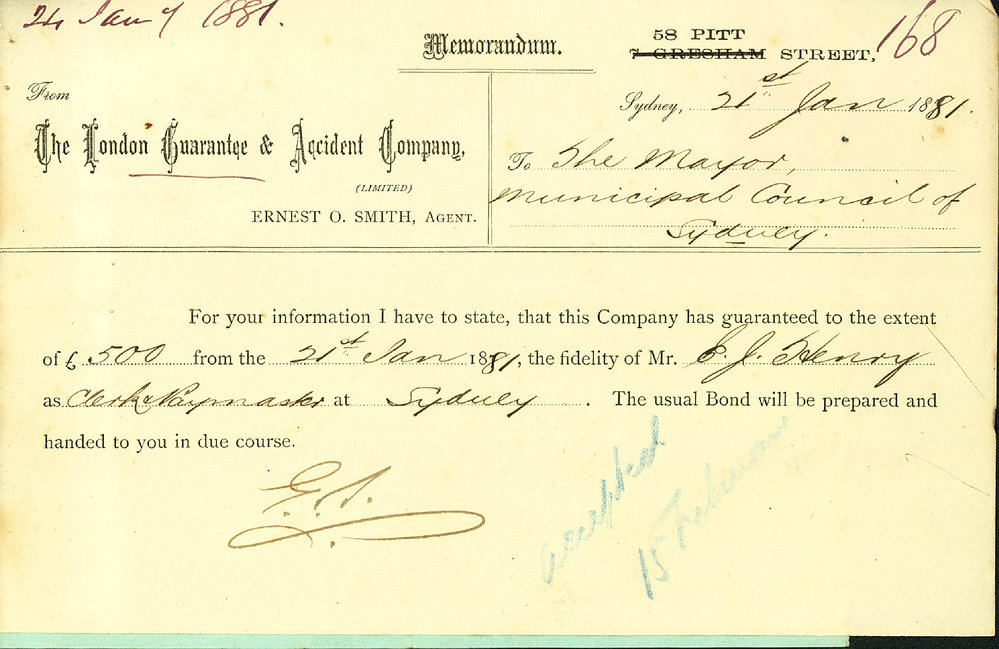 24 Jany 1881.
168
Memorandum.
58 PITT
7 GRESHAM STREET,
Sydney, 21st Jan 1881.
From
The London Guarantee & Accident Company,
(LIMITED)
ERNEST O. SMITH, AGENT.
To The Mayor,
Municipal Council of
Sydney.
For your information I have to state, that this Company has guaranteed to the extent
of £ 500 from the 21st Jan 1881, the fidelity of Mr. E. J. Henry
as Clerk & Paymaster at Sydney . The usual Bond will be prepared and
handed to you in due course.
accepted
15 February